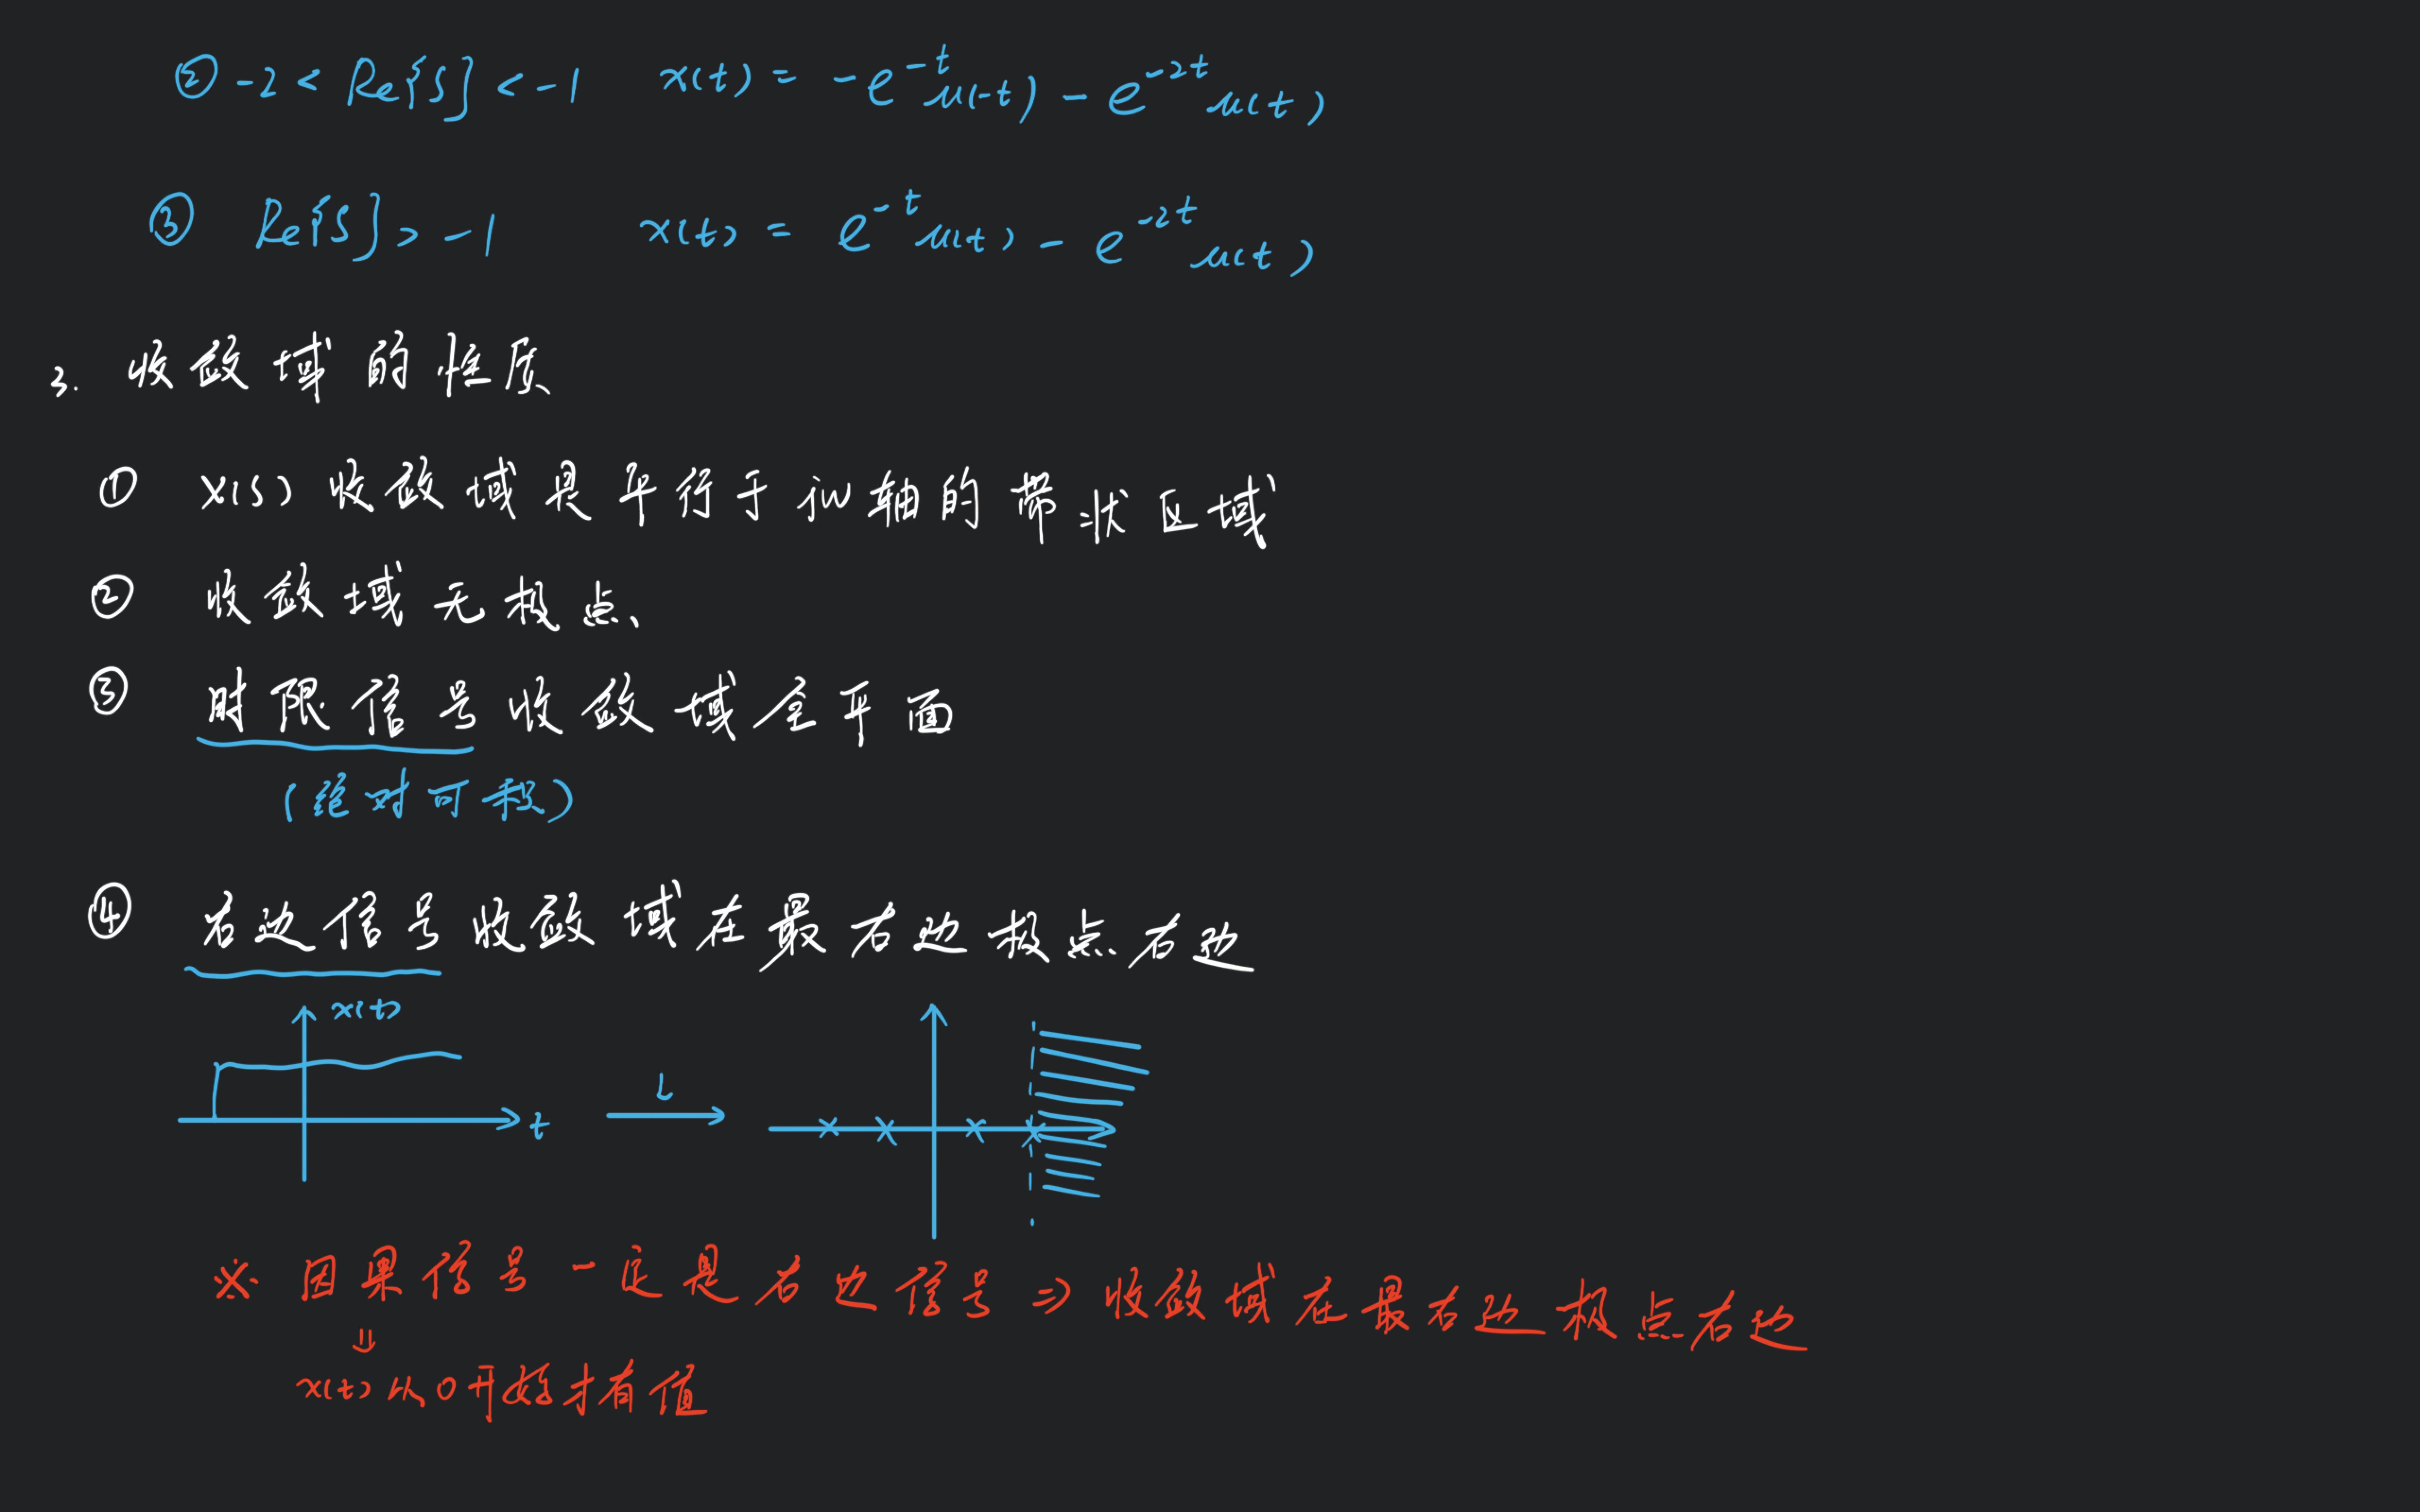 ② -2 < Re{s} < -1 x(t) = -e^{-t}u(-t) - e^{-2t}u(t)
③ Re{s} > -1 x(t) = e^{-t}u(t) - e^{-2t}u(t)
3. 收敛域的性质
① X(s) 收敛域是平行于jw轴的带状区域
② 收敛域无极点、
③ 时限信号收敛域全平面
(绝对可积)
④ 右边信号收敛域在最右边极点右边
x(t)
t
L
※ 因果信号一定是右边信号 ⇒ 收敛域在最右边极点右边
⇓
x(t)从0开始才有值